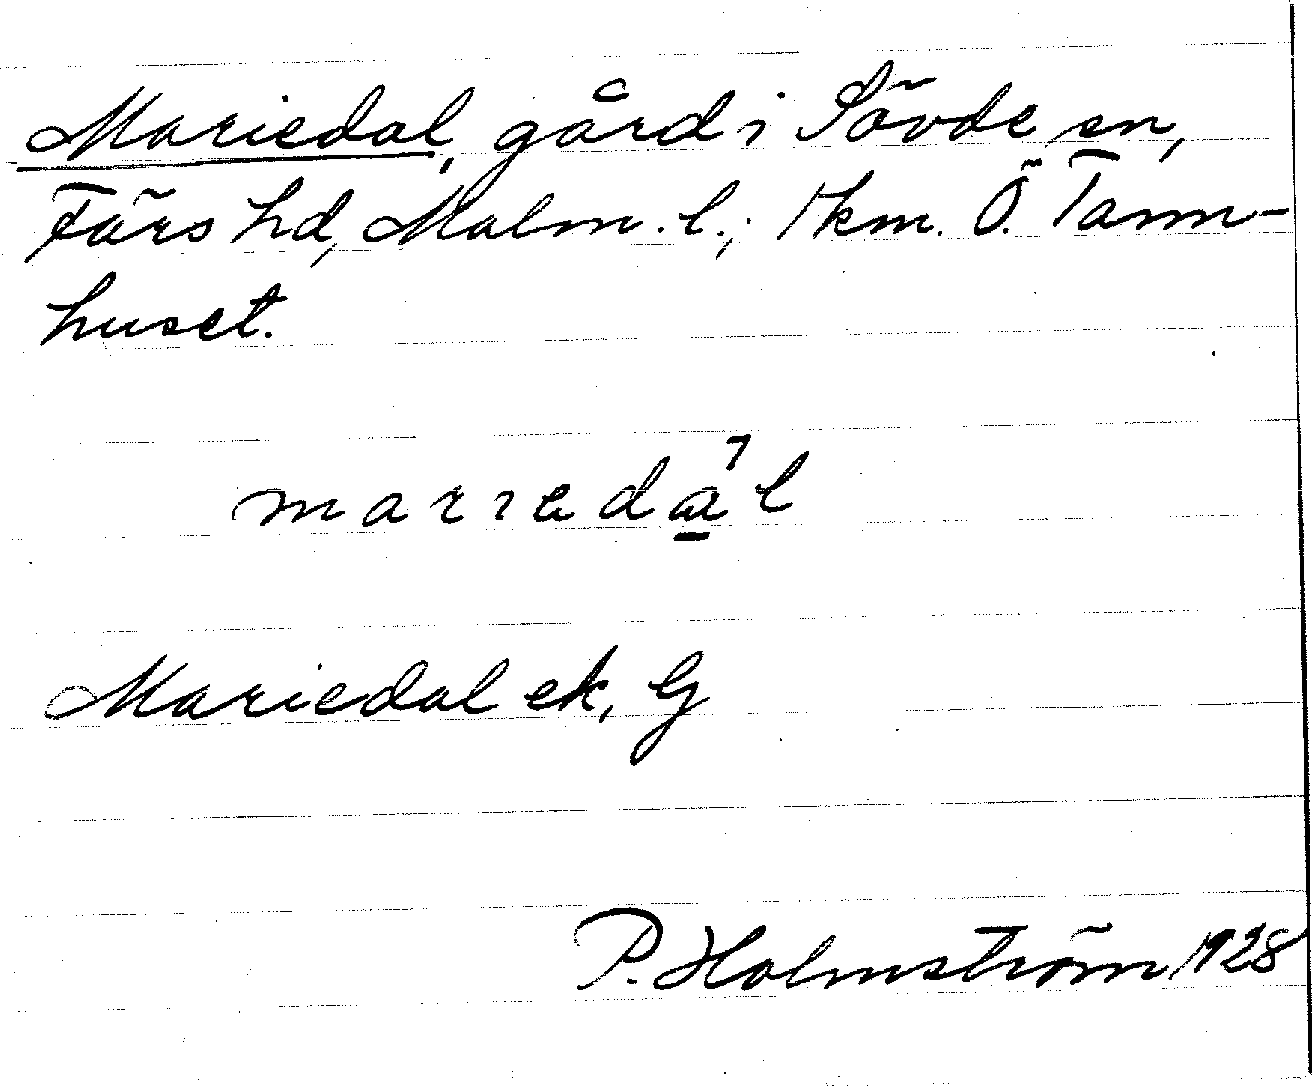 Mariedal, gård i Sövde sn,
Färs hd, Malm. l.; 1 km. Ö. Tann-
huset.
mariedal
Mariedal ek, G
P. Holmström 1928